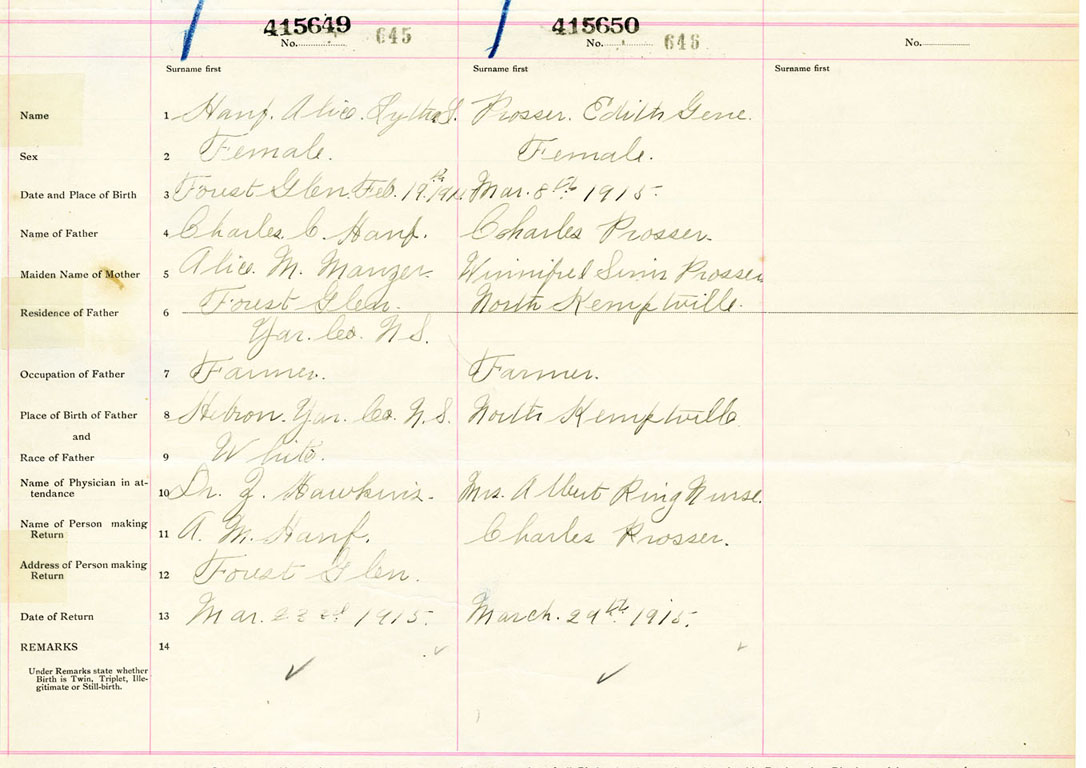 415649 415650
No. 645 No. 646 No.
Surname first Surname first Surname first
Name 1 Hanf. Alice. S. Prosser. Edith Gene.
Sex 2 Female. Female.
Date and Place of Birth 3 Forest Glen. Feb. 19th Mar. 8th 1915.
Name of Father 4 Charles. C. Hanf. Charles Prosser.
Maiden Name of Mother 5 Alice. M. Manzer. Winnifred Sims Prosser
Residence of Father 6 Forest Glen. North Kemptville.
Yar. Co. N.S.
Occupation of Father 7 Farmer. Farmer.
Place of Birth of Father 8 Hebron. Yar. Co. N.S. North Kemptville
and
Race of Father 9 White.
Name of Physician in at-
tendance 10 Dr. Hawkins. Mrs. Albert Ring Nurse.
Name of Person making
Return 11 A. M. Hanf. Charles Prosser.
Address of Person making
Return 12 Forest Glen.
Date of Return 13 Mar. 22nd 1915. March. 29th 1915.
REMARKS 14
Under Remarks state whether
Birth is Twin, Triplet, Ille-
gitimate or Still-birth.